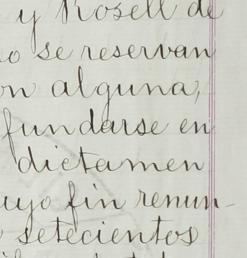 y Rosell de
o se reservan
on alguna,
fundarse en
dictamen
uyo fin renun-
setecientos